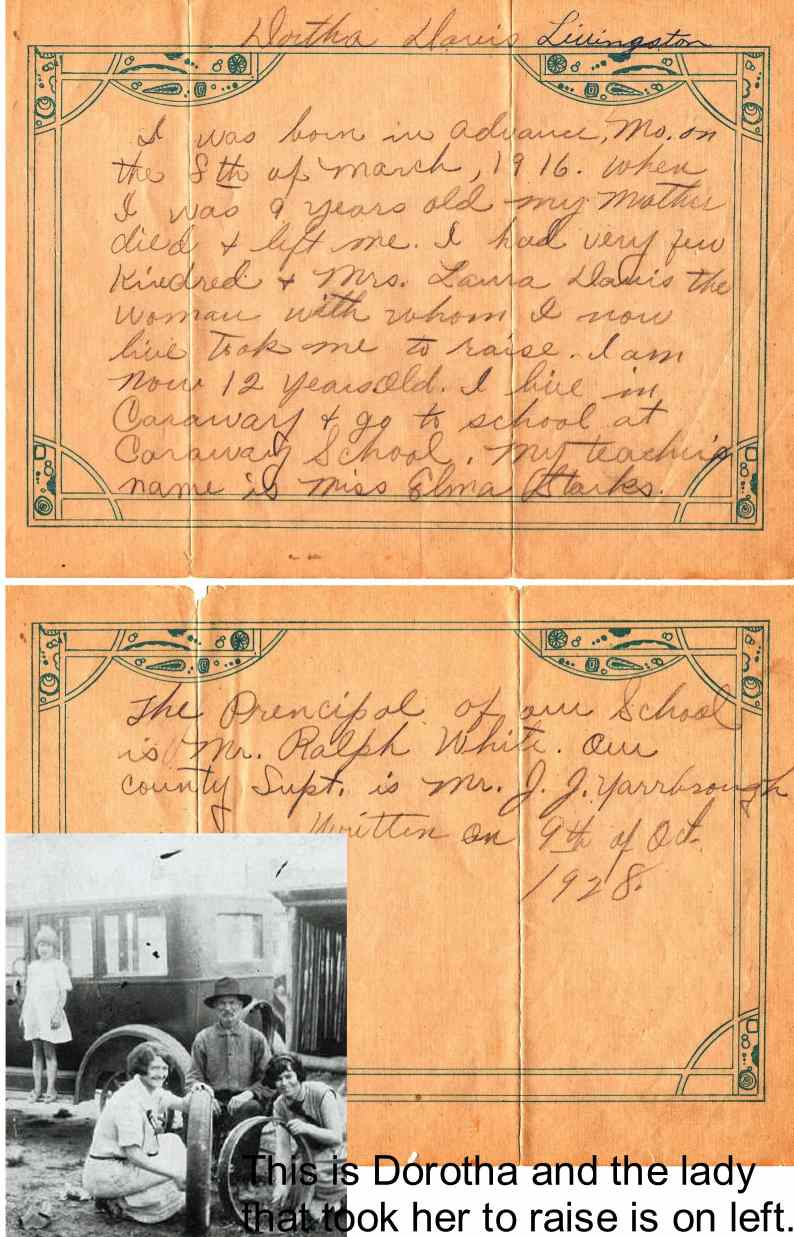 Dortha Davis Livingston
I was born in Advance, Mo. on
the 8th of March, 1916. When
I was 9 years old my Mother
died & left me. I had very few
Kindred & Mrs. Laura Davis the
woman with whom I now
live took me to raise. I am
now 12 years old. I live in
Caraway & go to school at
Caraway School. My teacher's
name is Miss Elma Starks.
The Prencipal of our School
is Mr. Ralph White. Our
county Supt. is Mr. J. J. Yarrbrough
Written on 9th of Oct.
1928.
This is Dorotha and the lady
that took her to raise is on left.